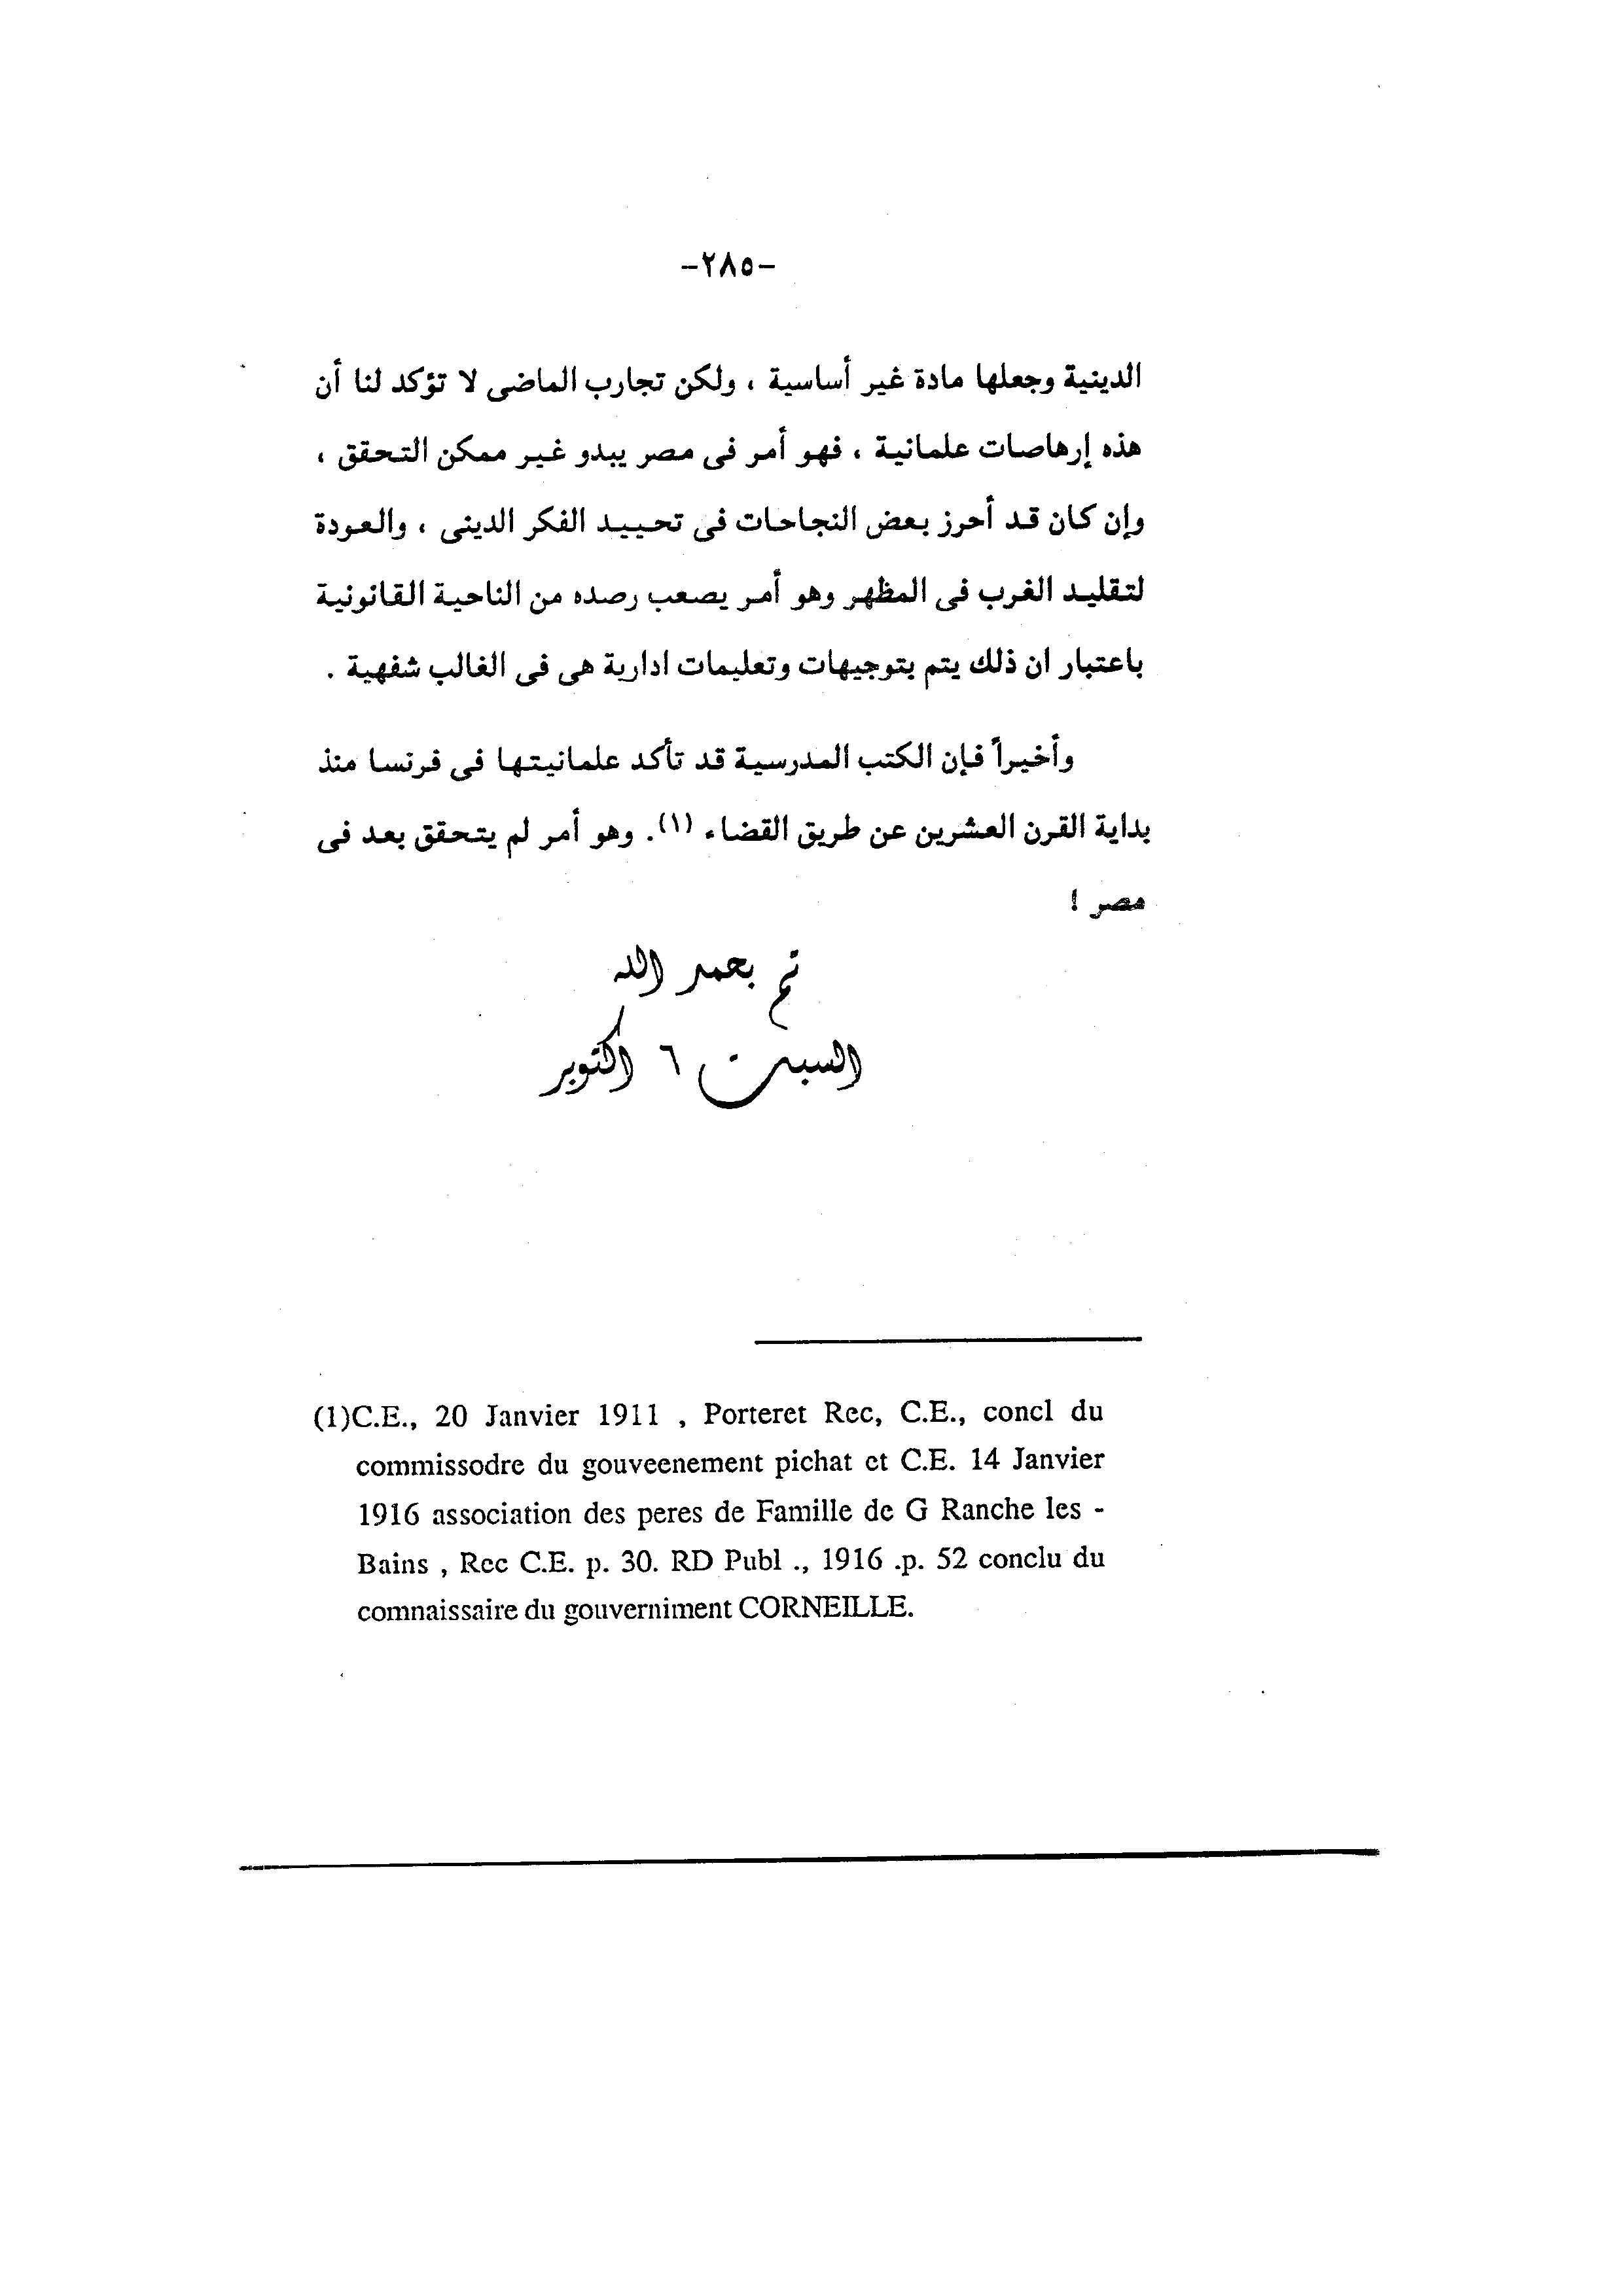 -٢٨٥-
الدينية وجعلها مادة غير أساسية ، ولكن تجارب الماضى لا تؤكد لنا أن
هذه إرهاصات علمانية ، فهو أمر فى مصر يبدو غير ممكن التحقق ،
وإن كان قد أحرز بعض النجاحات فى تحييد الفكر الدينى ، والعودة
لتقليد الغرب فى المظهر وهو أمر يصعب رصده من الناحية القانونية
باعتبار ان ذلك يتم بتوجيهات وتعليمات ادارية هى فى الغالب شفهية .
وأخيراً فإن الكتب المدرسية قد تأكد علمانيتها فى فرنسا منذ
بداية القرن العشرين عن طريق القضاء (١). وهو أمر لم يتحقق بعد فى
مصر !
تم بحمد الله
السبت ٦ اكتوبر
(1)C.E., 20 Janvier 1911 , Porteret Rec, C.E., concl du
commissodre du gouveenement pichat et C.E. 14 Janvier
1916 association des peres de Famille de G Ranche les -
Bains , Rec C.E. p. 30. RD Publ ., 1916 .p. 52 conclu du
comnaissaire du gouverniment CORNEILLE.